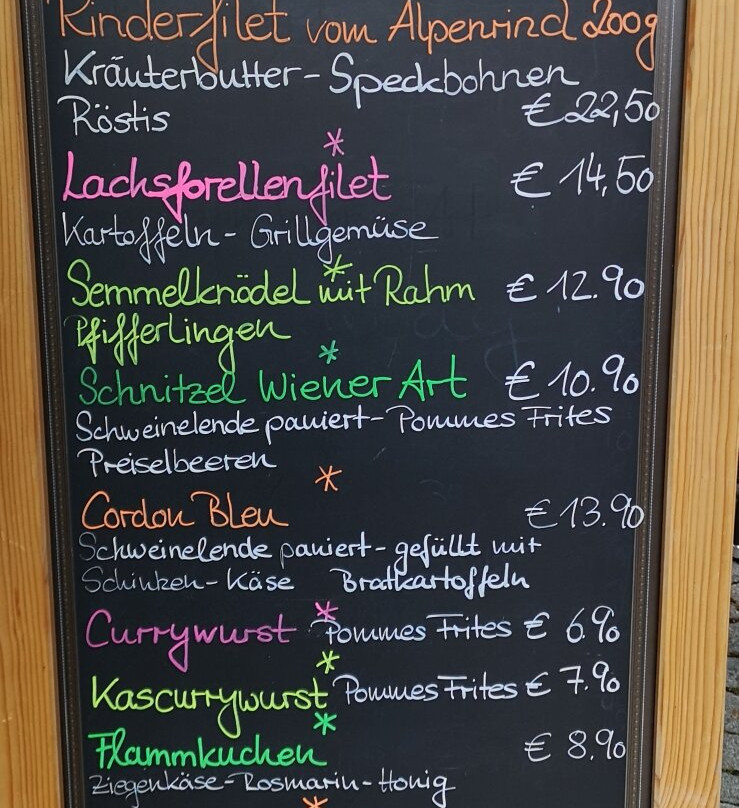 Rinderfilet vom Alpenrind 200g
Kräuterbutter - Speckbohnen
Röstis € 22,50
Lachsforellenfilet € 14,50
Kartoffeln - Grillgemüse
Semmelknödel mit Rahm € 12.90
Pfifferlingen
Schnitzel Wiener Art € 10.90
Schweinelende paniert - Pommes Frites
Preiselbeeren
Cordon Bleu € 13.90
Schweinelende paniert - gefüllt mit
Schinken - Käse Bratkartoffeln
Currywurst Pommes Frites € 6.90
Kascurrywurst Pommes Frites € 7.90
Flammkuchen € 8.90
Ziegenkäse - Rosmarin - Honig